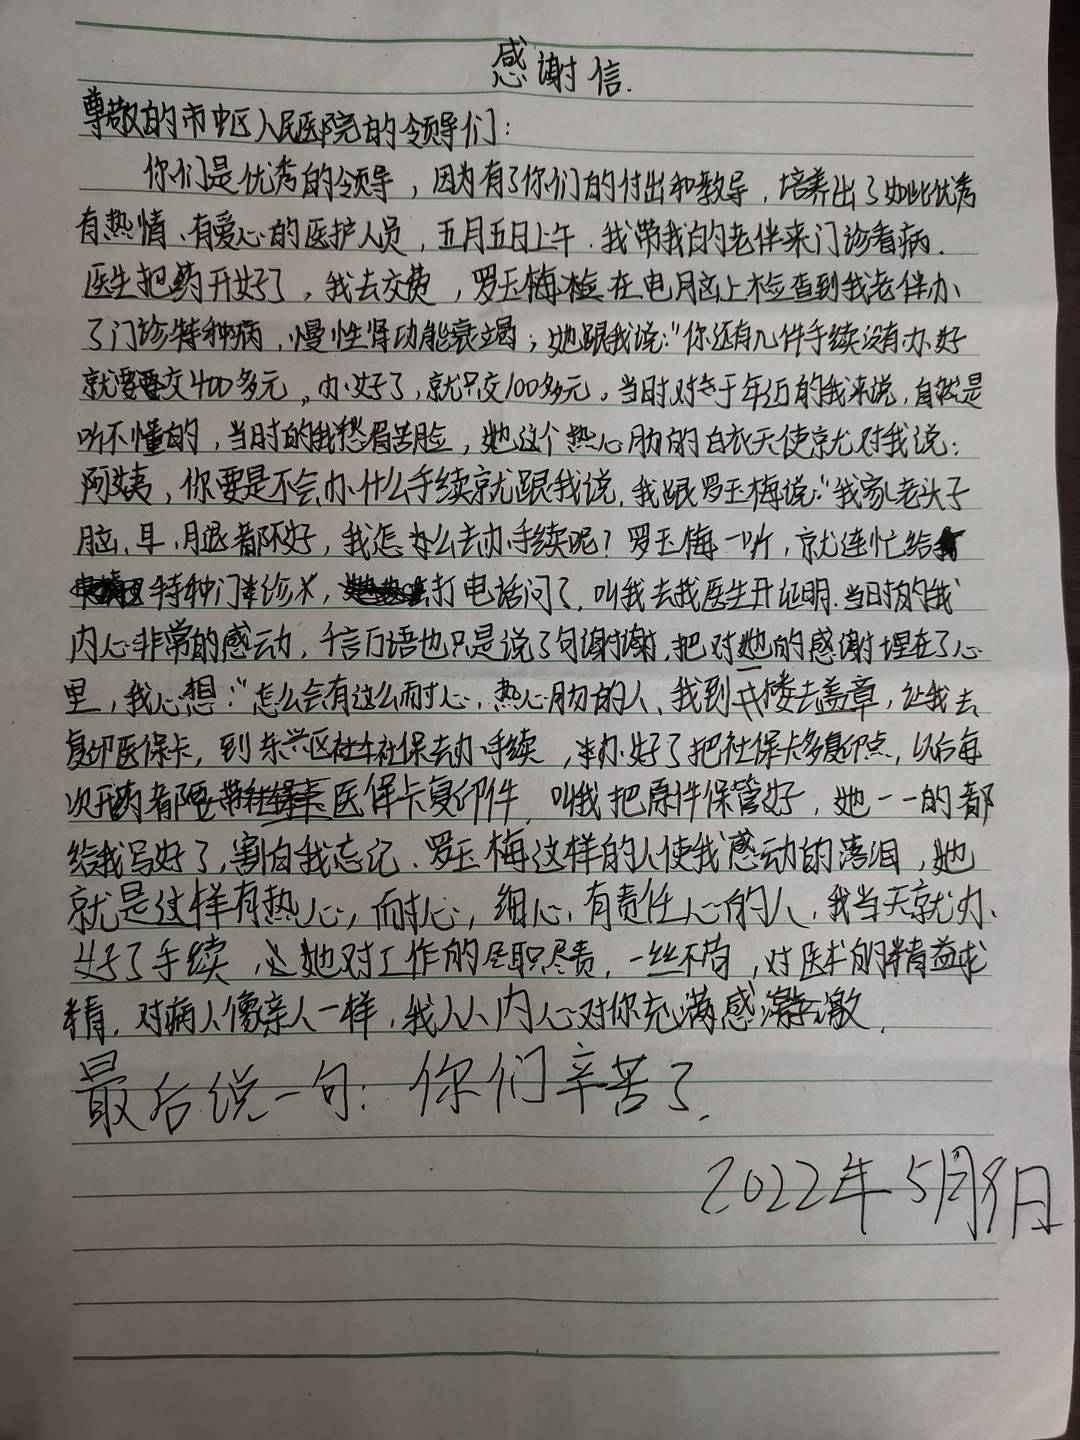 感谢信.
尊敬的市中区人民医院的领导们:
你们是优秀的领导,因为有了你们的付出和教导,培养出了如此优秀
有热情、有爱心的医护人员,五月五日上午.我带我的老伴来门诊看病.
医生把药开好了,我去交费,罗玉梅检在电脑上检查到我老伴办
了门诊特种病,慢性肾功能衰竭;她跟我说:"你还有几件手续没有办好
就要交400多元,办好了,就只交100多元。当时对于年迈的我来说,自然是
听不懂的,当时的我愁眉苦脸,她这个热心肠的白衣天使就对我说:
阿姨,你要是不会办什么手续就跟我说,我跟罗玉梅说:"我家老头子
脑、耳、腿都不好,我怎么去办手续呢?罗玉梅一听,就连忙给
特种门诊,打电话问了,叫我去找医生开证明.当时的我
内心非常的感动,千言万语也只是说了句谢谢,把对她的感谢埋在了心
里,我心想:"怎么会有这么耐心、热心肠的人、我到楼去盖章,让我去
复印医保卡,到东兴区社保去办手续,办好了把社保卡多复印点,以后每
次开药都要带医保卡复印件,叫我把原件保管好,她一一的都
给我写好了,害怕我忘记.罗玉梅这样的人使我感动的落泪,她
就是这样有热心,耐心,细心,有责任心的人,我当天就办
好了手续,她对工作的尽职尽责,一丝不苟,对医术的精益求
精,对病人像亲人一样,我从内心对你充满感激.
最后说一句:你们辛苦了.
2022年5月9日